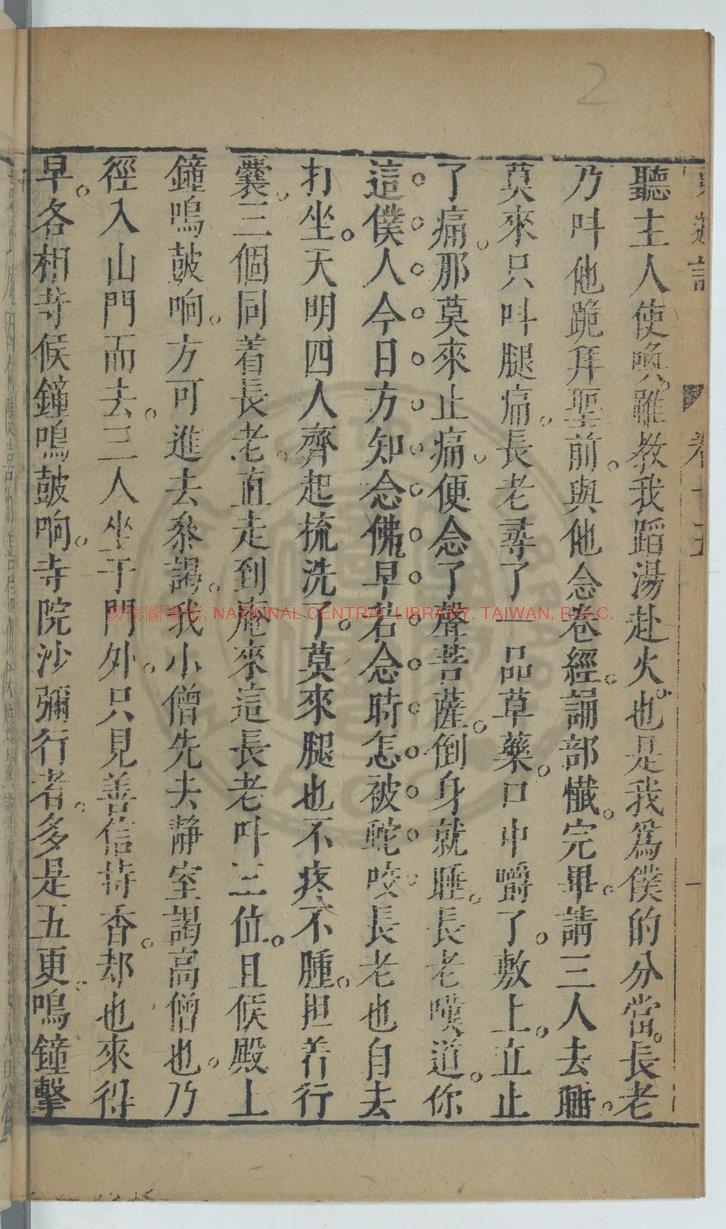 2
聽主人使喚。雖教我蹈湯赴火。也是我爲僕的分當。長老
乃呌他跪拜聖前。與他念卷經。誦部懺。完畢。請三人去睡。
莫來只呌腿痛。長老尋了一品草藥。口中嚼了。敷上。立止
了痛。那莫來止痛。便念了聲菩薩。倒身就睡。長老嘆道。你
這僕人今日方知念佛早若念時怎被蛇咬長老也自去
打坐。天明四人齊起梳洗了。莫來腿也不疼不腫。担着行
囊。三個同着長老。直走到庵來這長老呌三位。且候殿上
鐘鳴鼓响。方可進去叅謁。我小僧先去静室謁高僧也。乃
徑入山門而去。三人坐于門外。只見善信持香。却也來得
早。各相等候鐘鳴鼓响。寺院沙彌行者。多是五更。鳴鐘擊
國家圖書館, NATIONAL CENTRAL LIBRARY, TAIWAN, R.O.C.